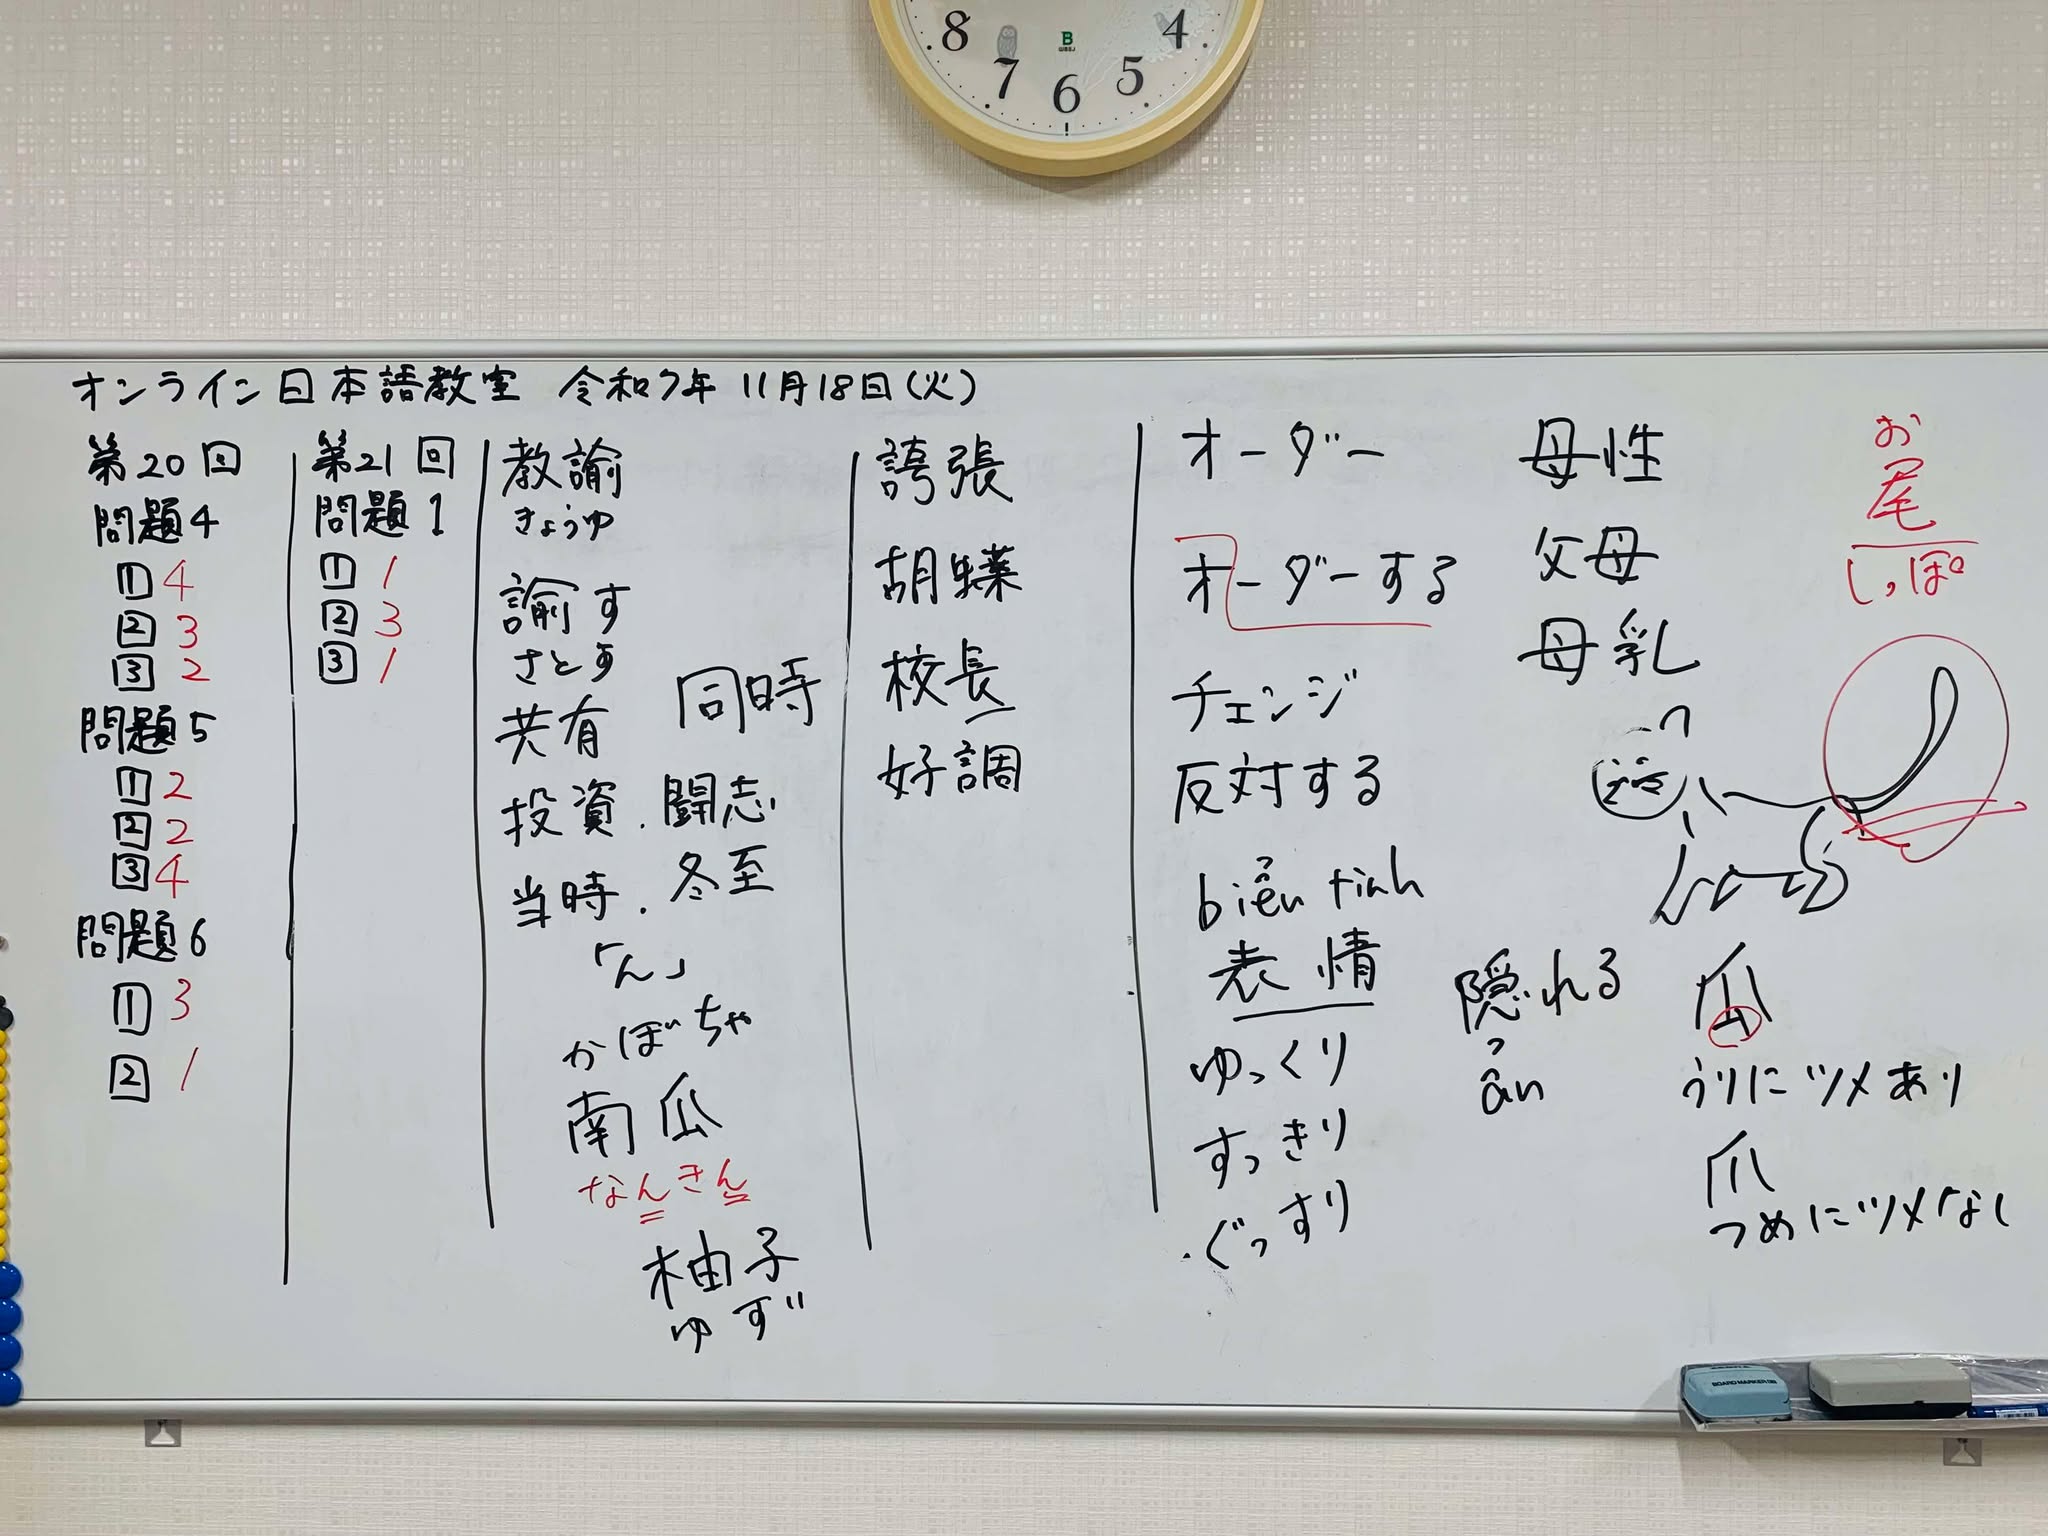 8
7
6
5
4
B
オンライン日本語教室 令和7年 11月18日(火)
第20回
問題4
1 4
2 3
3 2
問題5
1 2
2 2
3 4
問題6
1 3
2 1
第21回
問題1
1 1
2 3
3 1
教諭
きょうゆ
諭す
さとす
共有
同時
投資.闘志
当時.冬至
「ん」
かぼちゃ
南瓜
なんきん
柚子
ゆず
誇張
胡蝶
校長
好調
オーダー
オーダーする
チェンジ
反対する
biển tinh
表情
ゆっくり
すっきり
ぐっすり
母性
父母
母乳
隠れる
ẩn
お
尾
しっぽ
瓜
うりにツメあり
爪
つめにツメなし
BOARD MARKER